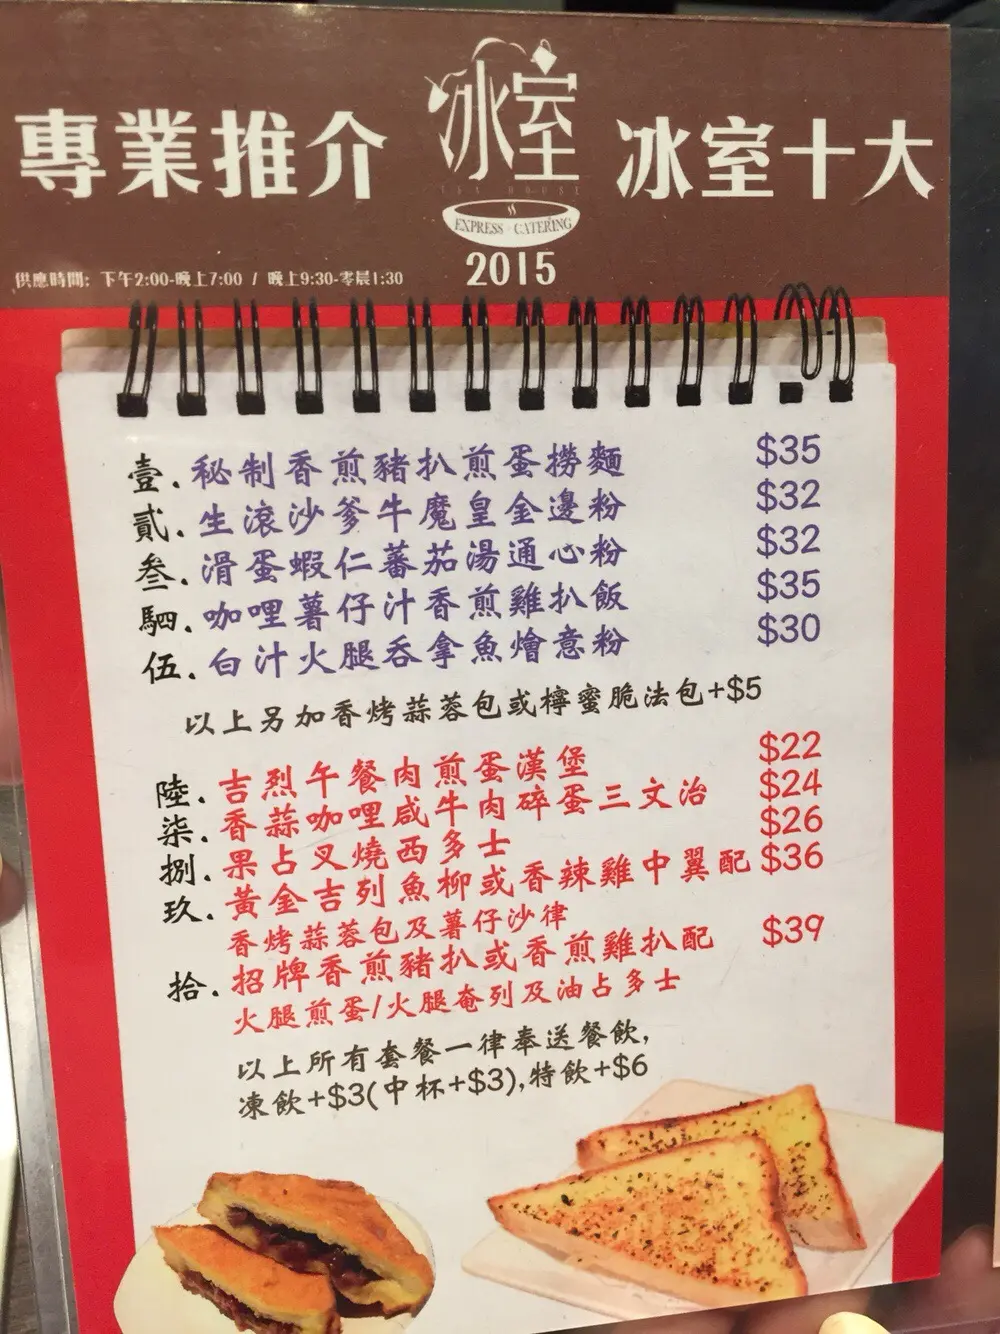 專業推介
冰室
TEA HOUSE
EXPRESS CATERING
2015
冰室十大
供應時間: 下午2:00-晚上7:00 / 晚上9:30-零晨1:30
壹. 秘制香煎豬扒煎蛋撈麵 $35
貳. 生滾沙爹牛魔皇金邊粉 $32
叁. 滑蛋蝦仁蕃茄湯通心粉 $32
駟. 咖哩薯仔汁香煎雞扒飯 $35
伍. 白汁火腿吞拿魚燴意粉 $30
以上另加香烤蒜蓉包或檸蜜脆法包+$5
陸. 吉烈午餐肉煎蛋漢堡 $22
柒. 香蒜咖哩咸牛肉碎蛋三文治 $24
捌. 果占叉燒西多士 $26
玖. 黃金吉列魚柳或香辣雞中翼配 $36
香烤蒜蓉包及薯仔沙律
拾. 招牌香煎豬扒或香煎雞扒配 $39
火腿煎蛋/火腿奄列及油占多士
以上所有套餐一律奉送餐飲,
凍飲+$3(中杯+$3),特飲+$6